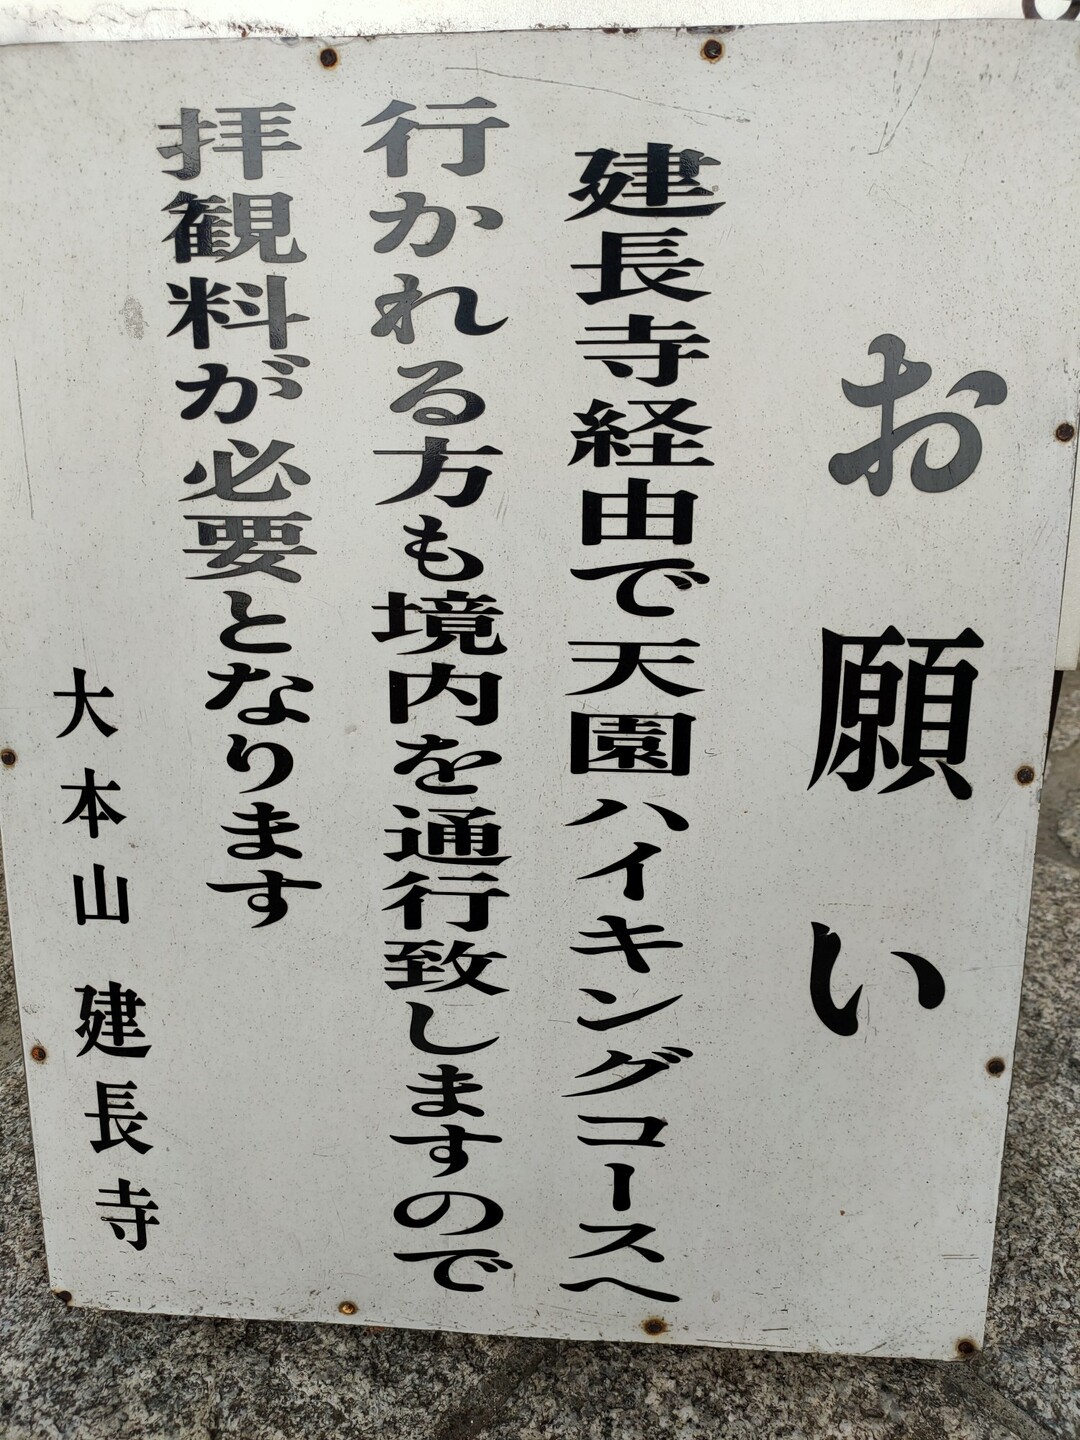 お願い
建長寺経由で天園ハイキングコースへ
行かれる方も境内を通行致しますので
拝観料が必要となります
大本山 建長寺